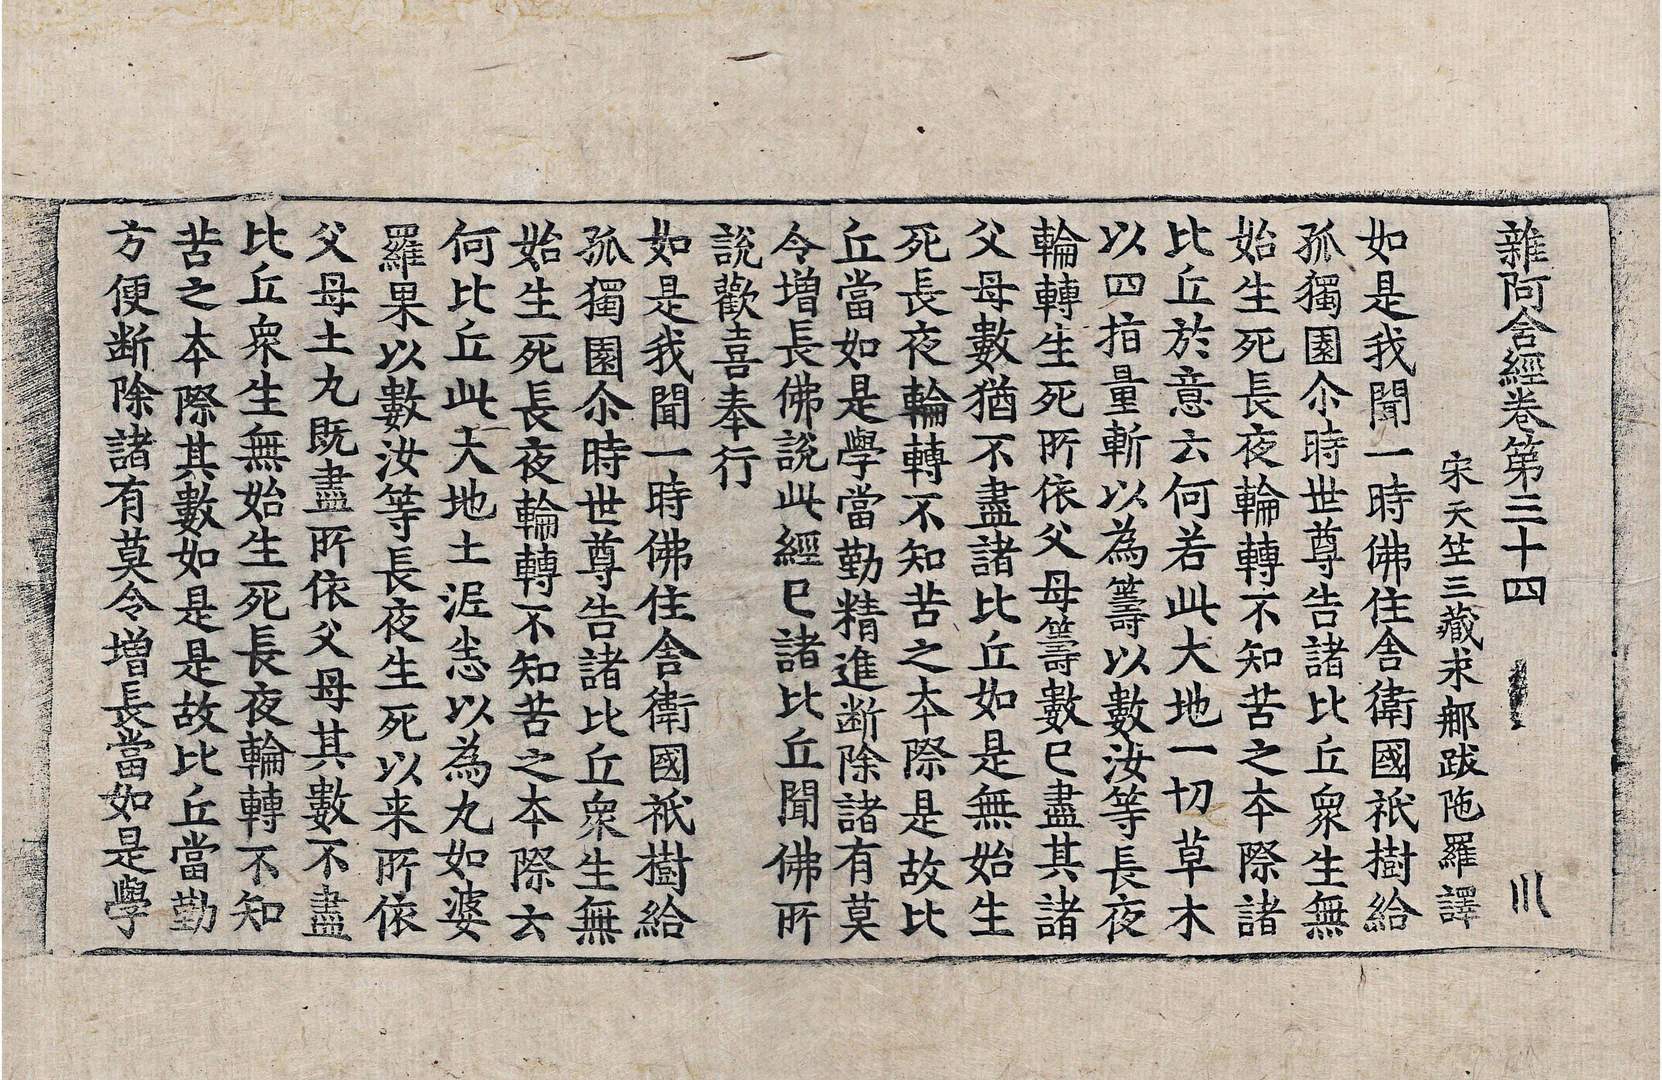 雜阿含經卷第三十四 川
宋天竺三藏求那跋陁羅譯
如是我聞一時佛住舍衛國祇樹給
孤獨園尒時世尊告諸比丘衆生無
始生死長夜輪轉不知苦之本際諸
比丘於意云何若此大地一切草木
以四指量斬以為籌以數汝等長夜
輪轉生死所依父母籌數已盡其諸
父母數猶不盡諸比丘如是無始生
死長夜輪轉不知苦之本際是故比
丘當如是學當勤精進断除諸有莫
令增長佛說此經已諸比丘聞佛所
說歡喜奉行
如是我聞一時佛住舍衛國祇樹給
孤獨園尒時世尊告諸比丘衆生無
始生死長夜輪轉不知苦之本際云
何比丘此大地土泥悉以為丸如婆
羅果以數汝等長夜生死以来所依
父母土丸既盡所依父母其數不盡
比丘衆生無始生死長夜輪轉不知
苦之本際其數如是是故比丘當勤
方便断除諸有莫令增長當如是學